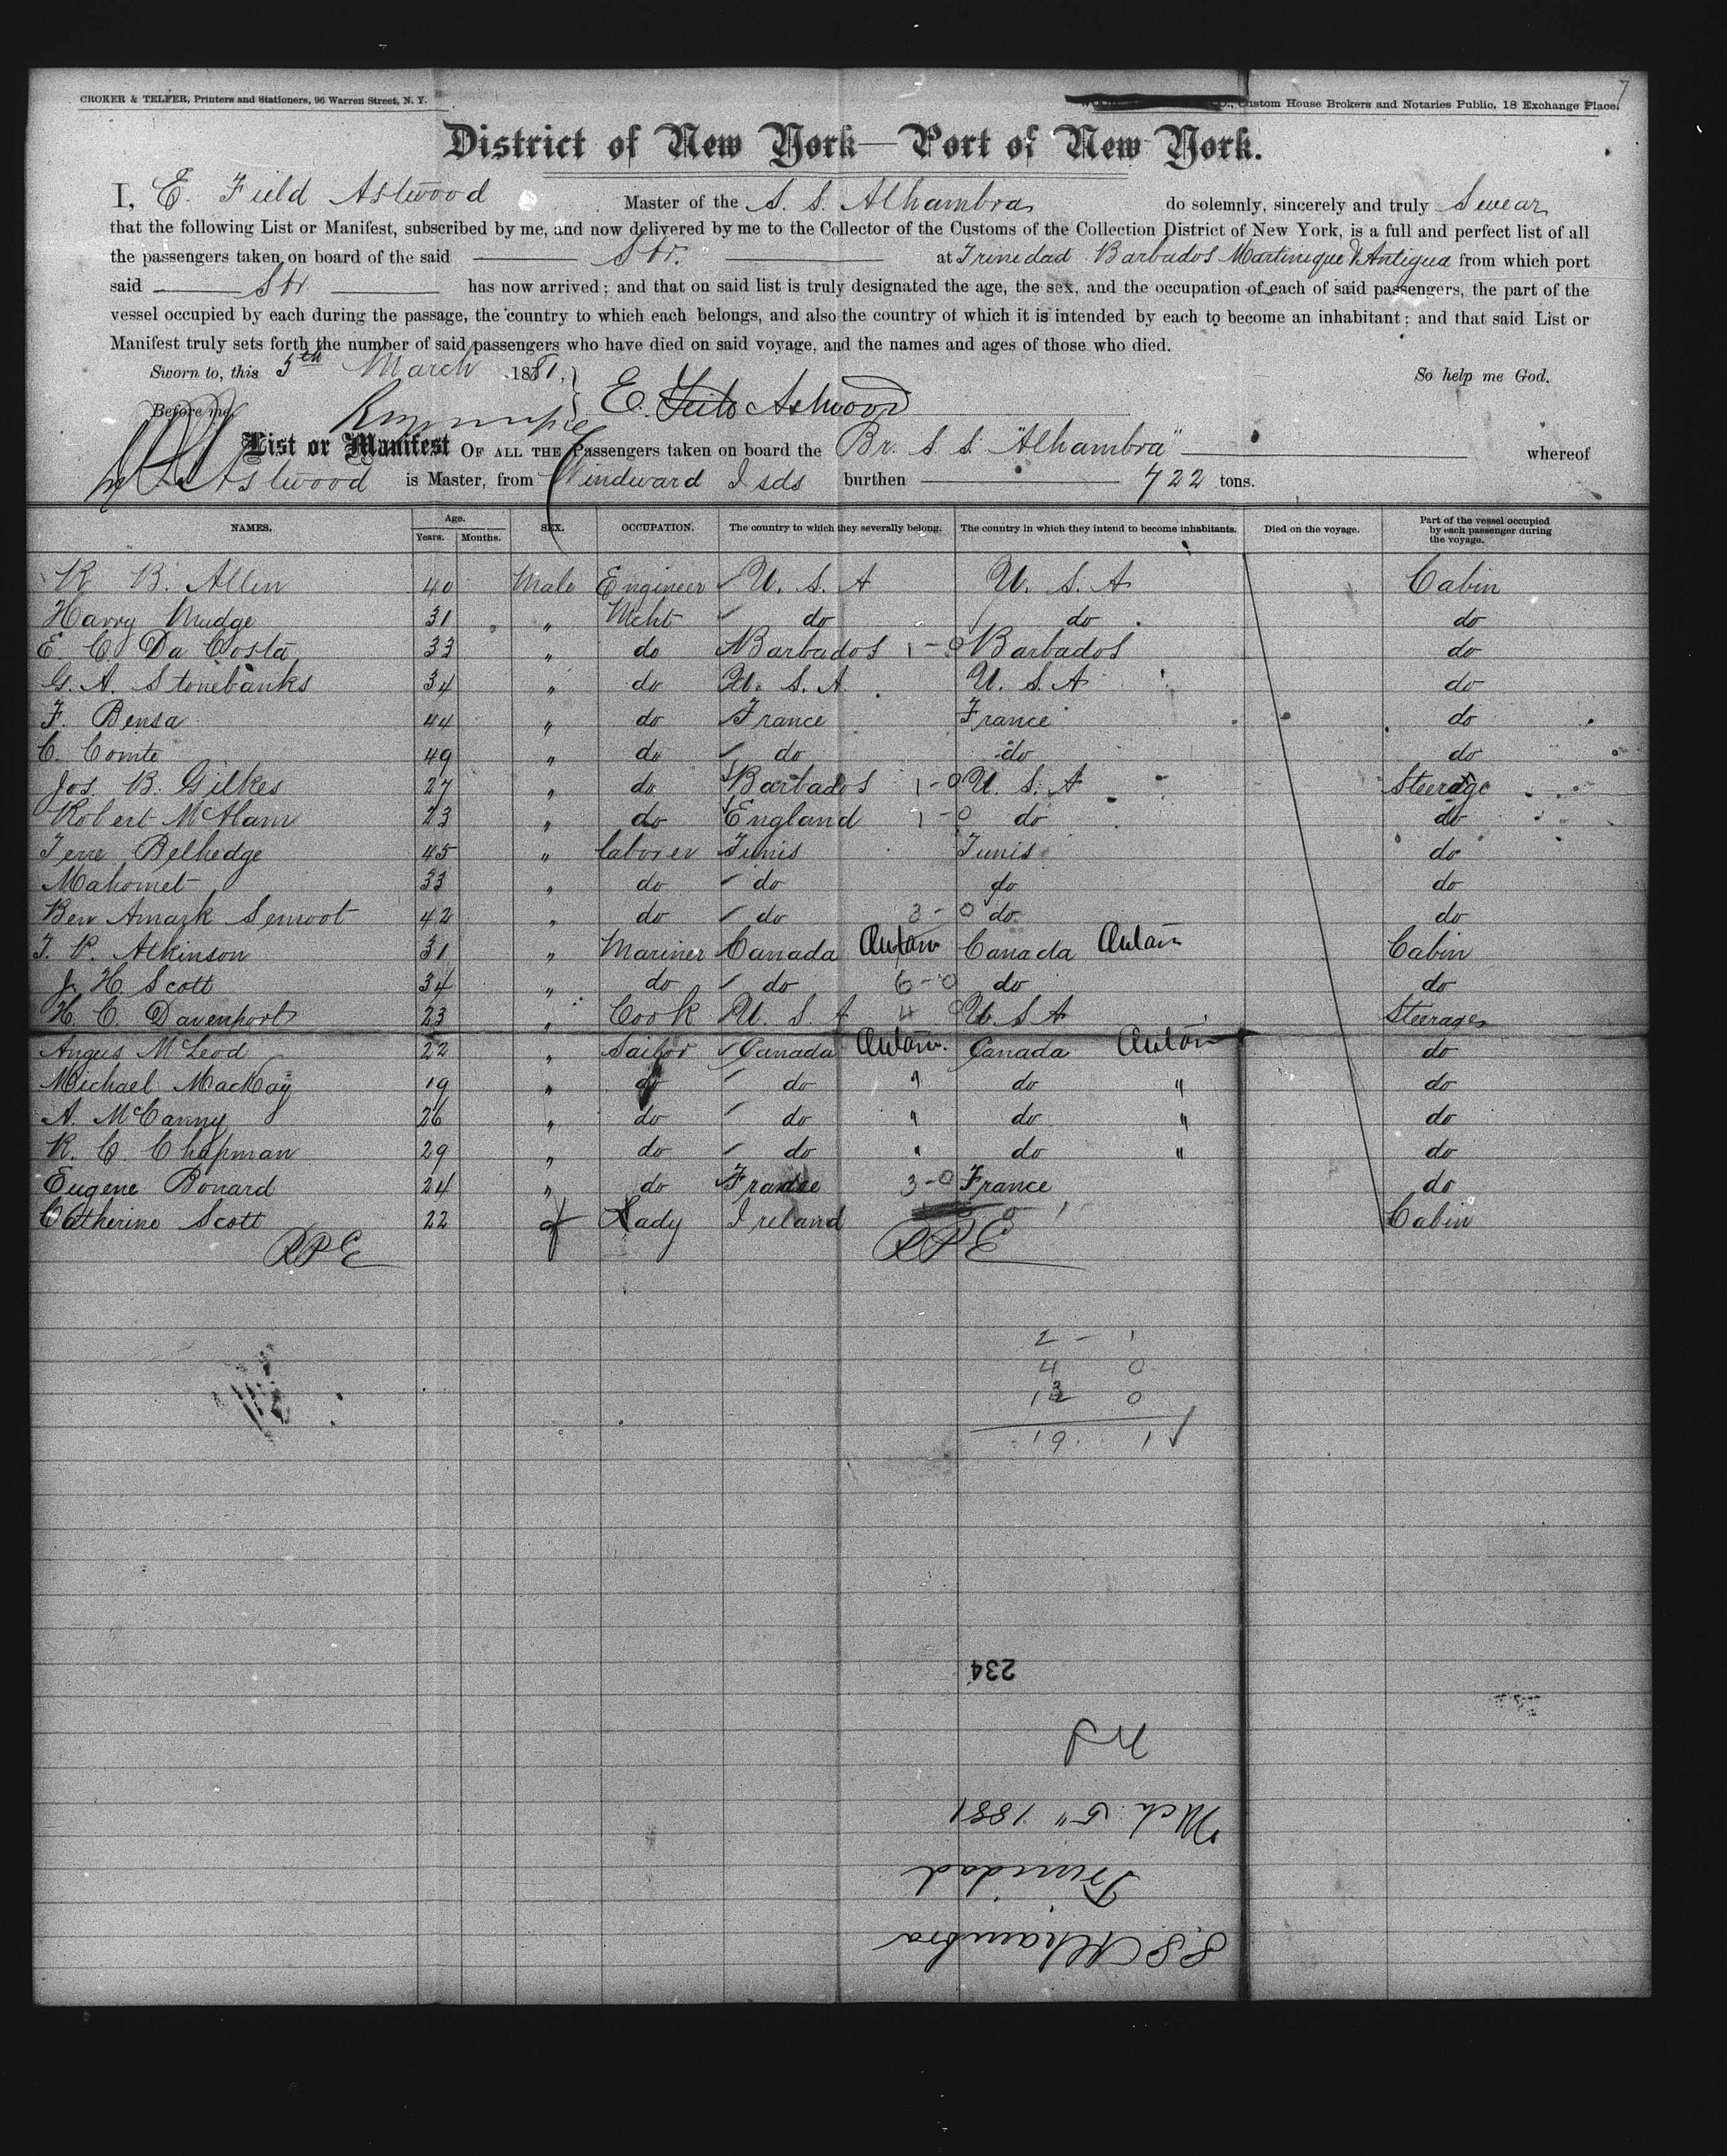 7
CROKER & TELFER, Printers and Stationers, 96 Warren Street, N. Y.
Custom House Brokers and Notaries Public, 18 Exchange Place.
District of New York—Port of New York.
I, E. Field Astwood Master of the S. S. Alhambra do solemnly, sincerely and truly Swear
that the following List or Manifest, subscribed by me, and now delivered by me to the Collector of the Customs of the Collection District of New York, is a full and perfect list of all
the passengers taken on board of the said Str. at Trinedad Barbados Martinique & Antigua from which port
said Str. has now arrived; and that on said list is truly designated the age, the sex, and the occupation of each of said passengers, the part of the
vessel occupied by each during the passage, the country to which each belongs, and also the country of which it is intended by each to become an inhabitant; and that said List or
Manifest truly sets forth the number of said passengers who have died on said voyage, and the names and ages of those who died.
Sworn to, this 5th March 1881. So help me God.
Before me, E. Field Astwood
List or Manifest OF ALL THE Passengers taken on board the Br. S. S. "Alhambra" whereof
Astwood is Master, from Windward Isds burthen 722 tons.
NAMES. Age. Years. Months. SEX. OCCUPATION. The country to which they severally belong. The country in which they intend to become inhabitants. Died on the voyage. Part of the vessel occupied by each passenger during the voyage.
R. B. Allen 40 Male Engineer U. S. A U. S. A Cabin
Harry Mudge 31 " Mcht do do do
E. C. Da Costa 33 " do Barbados 1-0 Barbados do
G. A. Stonebanks 34 " do U. S. A. U. S. A do
F. Bensa 44 " do France France do
C. Comte 49 " do do do do
Jos. B. Gilkes 27 " do Barbados 1-0 U. S. A Steerage
Robert McAlam 23 " do England 1-0 do do
Belhedge 45 " laborer Tunis Tunis do
Mahomet 33 " do do do do
Ben Amark Semoot 42 " do do 3-0 do do
T. P. Atkinson 31 " Mariner Canada Canada Cabin
J. H. Scott 34 " do do 6-0 do do
H. C. Davenport 23 " Cook U. S. A 4 0 U. S. A Steerage
Angus McLeod 22 " Sailor Canada Canada do
Michael MacKay 19 " do do " do " do
A. McCanny 26 " do do " do " do
R. C. Chapman 29 " do do " do " do
Eugene Bonard 24 " do France 3-0 France do
Catherine Scott 22 f Lady Ireland 0 - 1 Cabin
RPE RPE
2 - 1
4 0
13 0
19 1
234
NS
Mch 5" 1881
Trinidad
S.S. Alhambra